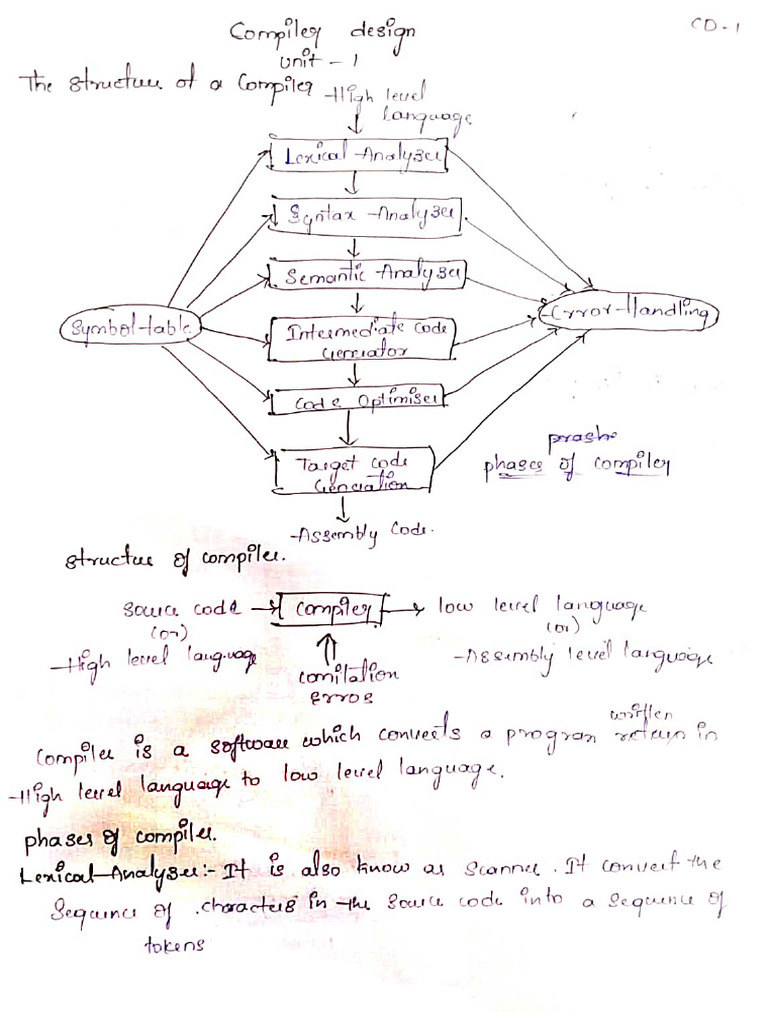 CD-1
Compiler design
unit-1
The structure of a Compiler
High level
language
Lexical Analyzer
Syntax Analyzer
Semantic Analyzer
Symbol table
Intermediate Code
Generator
Error Handling
Code Optimiser
Target Code
Generation
phases of compiler
Assembly Code.
structure of compiler.
Source code → Compiler → low level language
(or) (or)
High level language Assembly level language
comilation
erros
written
Compiler is a software which converts a program in
High level language to low level language.
phases of compiler.
Lexical Analyzer:- It is also know as Scanner. It convert the
Sequence of characters in the source code into a sequence of
tokens